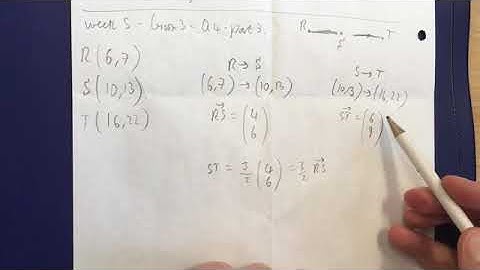 week 5 - Lesson 3 - Q4 part 3.
R S T
R (6,7)
S (10,13)
T (16,22)
R → S
(6,7) → (10,13)
RS = (4 6)
S → T
(10,13) → (16,22)
ST = (6 9)
ST = 3/2 (4 6) = 3/2 RS